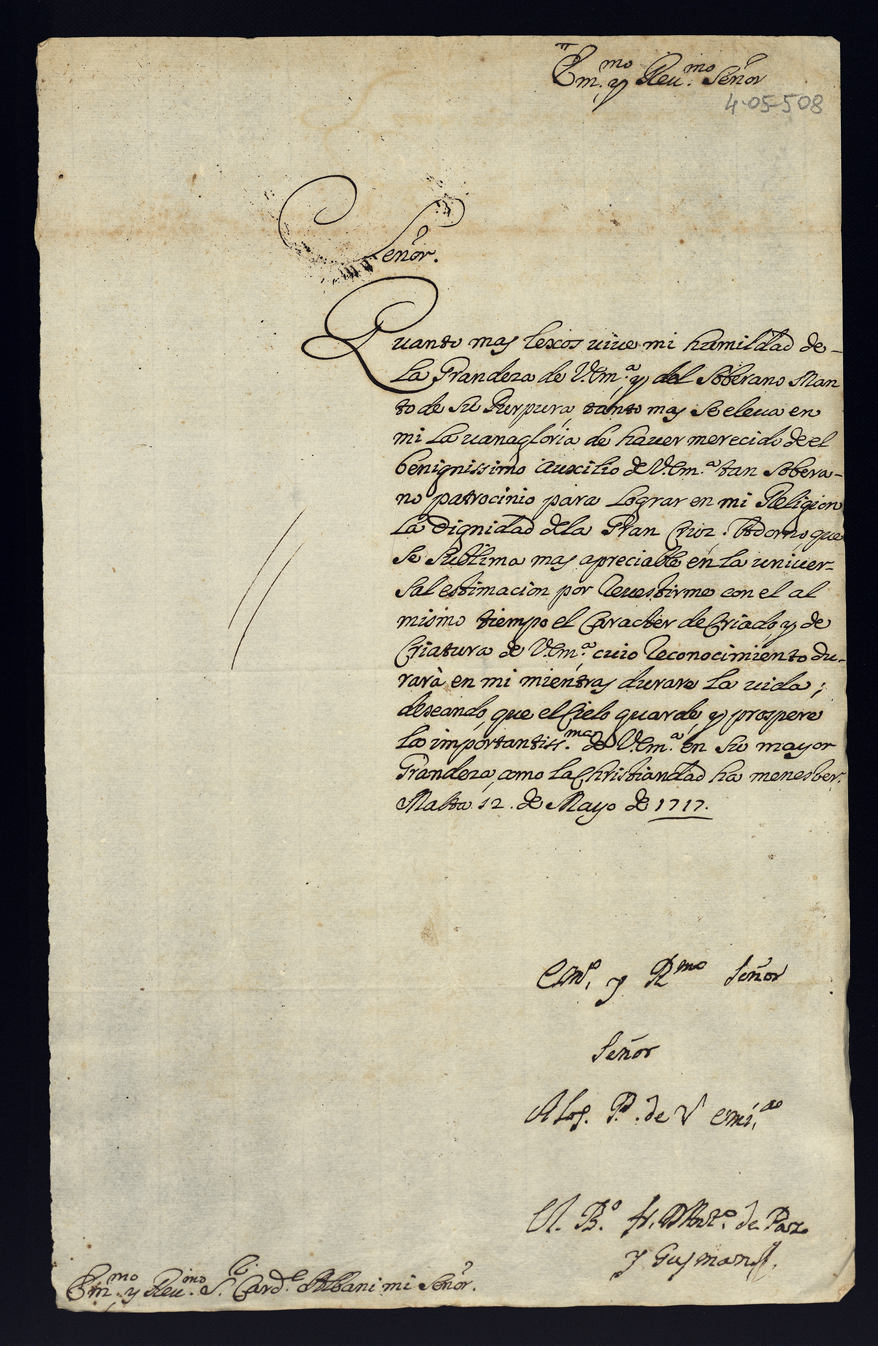 Em.mo y Reu.mo Señor
4-05-508
Señor.
Quanto mas lexos viue mi humildad de
la Grandeza de V.Em.a y del Soberano Man
to de su Purpura, tanto mas se eleua en
mi la vanagloria de hauer merecido de el
benignissimo auxilio de V.Em.a tan Sobera-
no patrocinio para lograr en mi Religion
la Dignidad de la Gran Cruz. Adorno que
se sublima mas apreciable en la vniuer-
sal estimacion por reuestirme con el al
mismo tiempo el Caracter de Criado, y de
Criatura de V.Em.a cuio reconocimiento du-
rarà en mi mientras durare la vida;
deseando, que el Cielo guarde, y prospere
la importantiss.ma de V.Em.a en su mayor
Grandeza, como la Christiandad ha menester.
Malta 12. de Mayo de 1717.
Em.o y R.mo Señor
Señor
A los P. de V Emi.a
El B.o fr. D Ant.o de Paz
y Gusman
Em.mo y Reu.mo S.r Card.l Albani mi Señor.